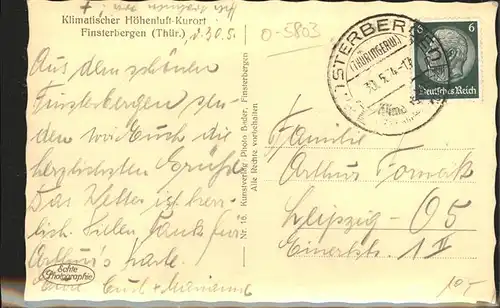 Klimatischer Höhenluft-Kurort
Finsterbergen (Thür.), d. 30.5.
Aus dem schönen
Finsterbergen sen-
den wir Euch die
herzlichsten Grüße
Das Wetter ist herr-
lich. Vielen Dank für
Arthur's Karte.
Eure
Echte
Photographie
Nr. 16. Kunstverlag Photo Bader, Finsterbergen
Alle Rechte vorbehalten
0-5803
FINSTERBERGEN
(THÜRINGERW.)
30.5.4
6
6
Deutsches Reich
Familie
Arthur
Leipzig - O5
1 II
10,-